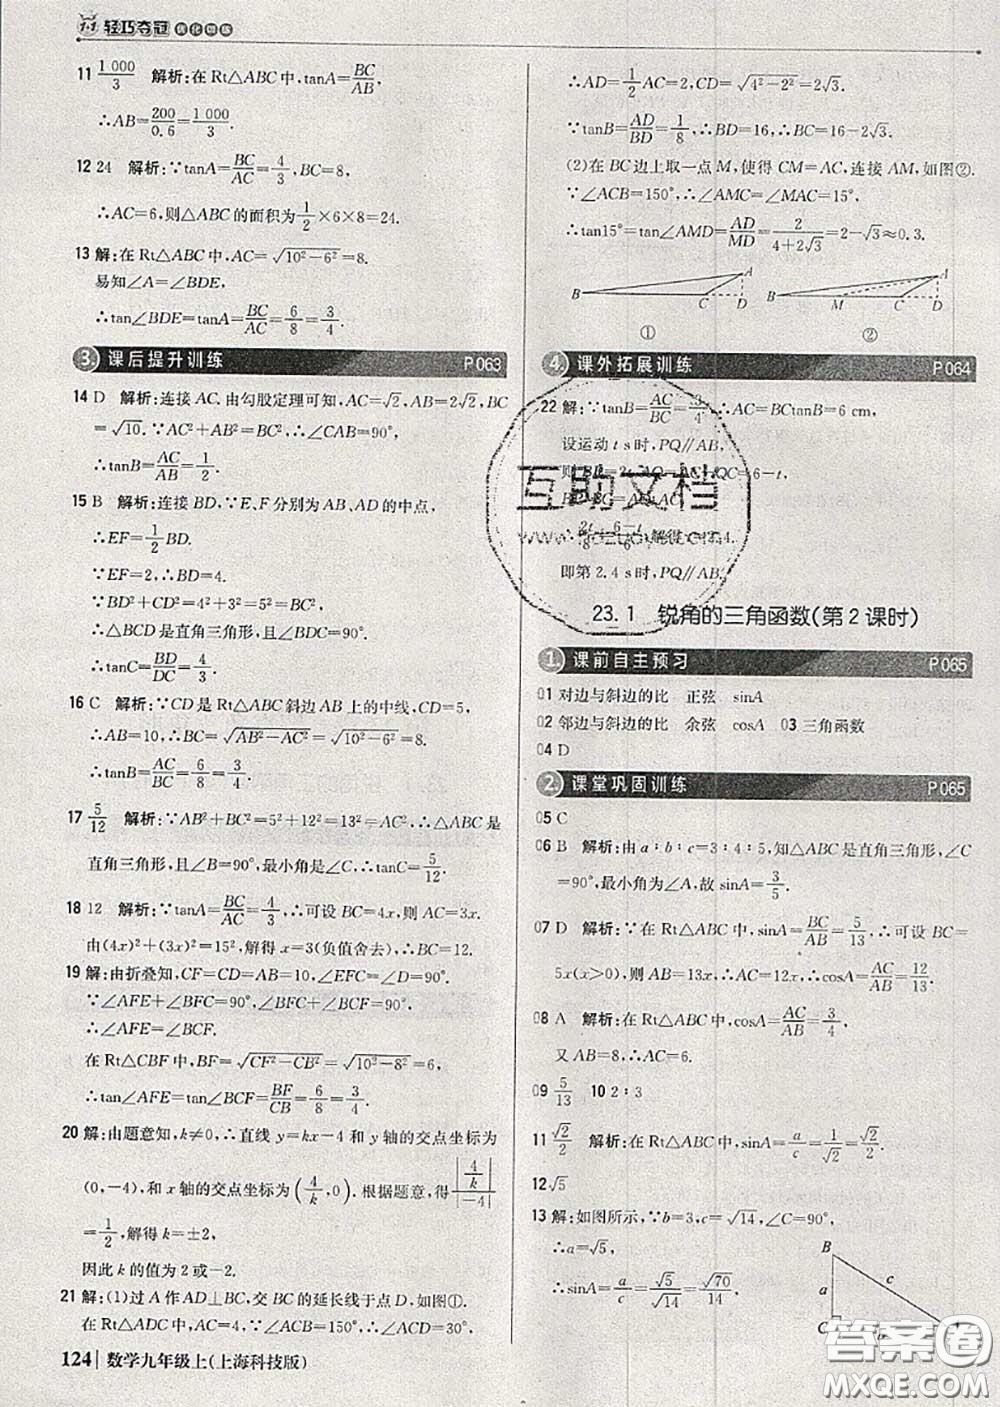 1+1 轻巧夺冠 优化训练
11 1 000/3 解析:在 Rt△ABC 中,tanA=BC/AB,
∴AB=200/0.6=1 000/3.
12 24 解析:∵tanA=BC/AC=4/3,BC=8,
∴AC=6,则△ABC 的面积为1/2×6×8=24.
13 解:在 Rt△ABC 中,AC=√(10²-6²)=8.
易知∠A=∠BDE,
∴tan∠BDE=tanA=BC/AC=6/8=3/4.
3. 课后提升训练 P063
14 D 解析:连接 AC.由勾股定理可知,AC=√2,AB=2√2,BC
=√10.∵AC²+AB²=BC²,∴∠CAB=90°,
∴tanB=AC/AB=1/2.
15 B 解析:连接 BD,∵E,F 分别为 AB,AD 的中点,
∴EF=1/2BD.
∵EF=2,∴BD=4.
∵BD²+CD²=4²+3²=5²=BC²,
∴△BCD 是直角三角形,且∠BDC=90°,
∴tanC=BD/DC=4/3.
16 C 解析:∵CD 是 Rt△ABC 斜边 AB 上的中线,CD=5,
∴AB=10,∴BC=√(AB²-AC²)=√(10²-6²)=8,
∴tanB=AC/BC=6/8=3/4.
17 5/12 解析:∵AB²+BC²=5²+12²=13²=AC²,∴△ABC 是
直角三角形,且∠B=90°,最小角是∠C,∴tanC=5/12.
18 12 解析:∵tanA=BC/AC=4/3,∴可设 BC=4x,则 AC=3x.
由(4x)²+(3x)²=15²,解得 x=3(负值舍去),∴BC=12.
19 解:由折叠知,CF=CD=AB=10,∠EFC=∠D=90°.
∵∠AFE+∠BFC=90°,∠BFC+∠BCF=90°,
∴∠AFE=∠BCF.
在 Rt△CBF 中,BF=√(CF²-CB²)=√(10²-8²)=6,
∴tan∠AFE=tan∠BCF=BF/CB=6/8=3/4.
20 解:由题意知,k≠0,∴直线 y=kx-4 和 y 轴的交点坐标为
(0,-4),和 x 轴的交点坐标为(4/k,0).根据题意,得|4/k|/|-4|
=1/2,解得 k=±2,
因此 k 的值为 2 或-2.
21 解:(1)过 A 作 AD⊥BC,交 BC 的延长线于点 D,如图①.
在 Rt△ADC 中,AC=4,∵∠ACB=150°,∴∠ACD=30°,
124 数学九年级上(上海科技版)
∴AD=1/2AC=2,CD=√(4²-2²)=2√3.
∵tanB=AD/BD=1/8,∴BD=16,∴BC=16-2√3.
(2)在 BC 边上取一点 M,使得 CM=AC,连接 AM,如图②.
∵∠ACB=150°,∴∠AMC=∠MAC=15°,
∴tan15°=tan∠AMD=AD/MD=2/(4+2√3)≈0.3.
A
B C D
①
A
B M C D
②
4. 课外拓展训练 P064
22 解:∵tanB=AC/BC=3/4,∴AC=BCtanB=6 cm,
设运动 t s时,PQ∥AB,
QC=6-t,
2t/8=6-t/6,解得
即第 2.4 s时,PQ∥AB.
互助文档
23.1 锐角的三角函数(第 2 课时)
1. 课前自主预习 P065
01 对边与斜边的比 正弦 sinA
02 邻边与斜边的比 余弦 cosA 03 三角函数
04 D
2. 课堂巩固训练 P065
05 C
06 B 解析:由 a∶b∶c=3∶4∶5,知△ABC 是直角三角形,∠C
=90°,最小角为∠A,故 sinA=3/5.
07 D 解析:∵在 Rt△ABC 中,sinA=BC/AB=5/13,∴可设 BC=
5x(x>0),则 AB=13x,∴AC=12x,∴cosA=AC/AB=12/13.
08 A 解析:在 Rt△ABC 中,cosA=AC/AB=3/4,
又 AB=8,∴AC=6.
09 5/13 10 2∶3
11 √2/2 解析:在 Rt△ABC 中,sinA=a/c=1/√2=√2/2.
12 √5
13 解:如图所示,∵b=3,c=√14,∠C=90°,
∴a=√5,
∴sinA=a/c=√5/√14=√70/14.
B
a c
C
答案圈
MXQE.COM